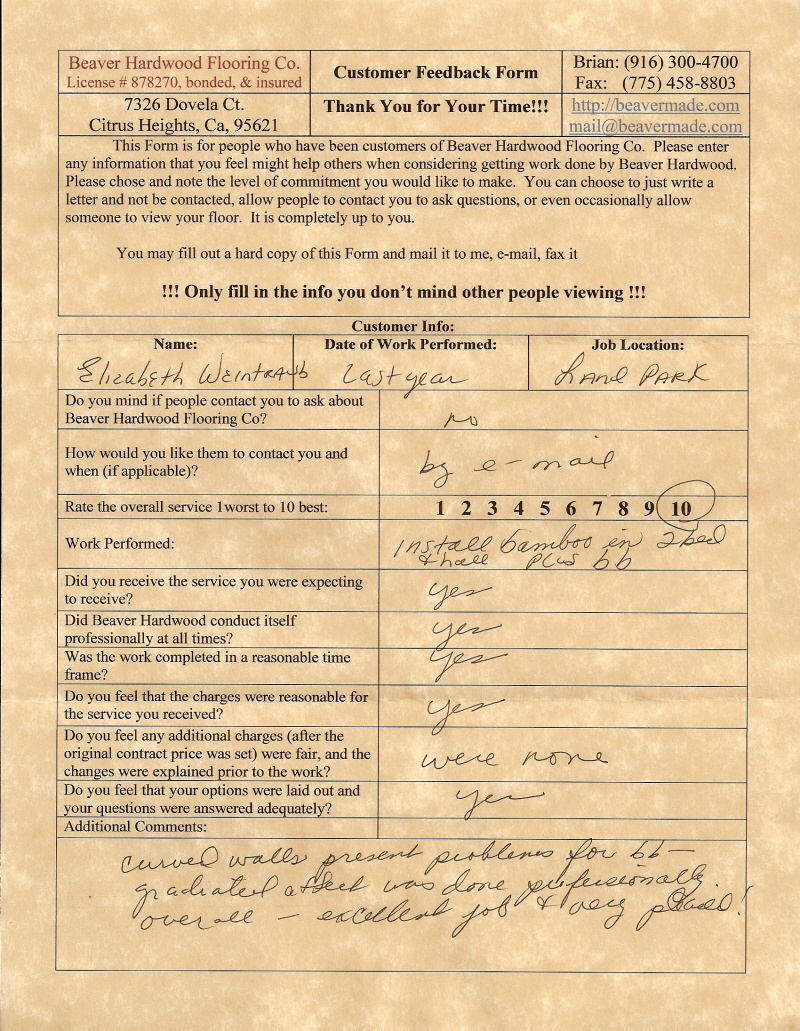 Beaver Hardwood Flooring Co.
License # 878270, bonded, & insured
Customer Feedback Form
Brian: (916) 300-4700
Fax: (775) 458-8803
7326 Dovela Ct.
Citrus Heights, Ca, 95621
Thank You for Your Time!!!
http://beavermade.com
mail@beavermade.com
This Form is for people who have been customers of Beaver Hardwood Flooring Co. Please enter
any information that you feel might help others when considering getting work done by Beaver Hardwood.
Please chose and note the level of commitment you would like to make. You can choose to just write a
letter and not be contacted, allow people to contact you to ask questions, or even occasionally allow
someone to view your floor. It is completely up to you.
You may fill out a hard copy of this Form and mail it to me, e-mail, fax it
!!! Only fill in the info you don't mind other people viewing !!!
Customer Info:
Name:
Date of Work Performed:
Job Location:
Elizabeth Weintraub
Last year
Land PARK
Do you mind if people contact you to ask about
Beaver Hardwood Flooring Co?
no
How would you like them to contact you and
when (if applicable)?
by e-mail
Rate the overall service 1worst to 10 best:
1 2 3 4 5 6 7 8 9 10
Work Performed:
Install bamboo in 2 bed
& hall plus bb
Did you receive the service you were expecting
to receive?
yes
Did Beaver Hardwood conduct itself
professionally at all times?
yes
Was the work completed in a reasonable time
frame?
yes
Do you feel that the charges were reasonable for
the service you received?
yes
Do you feel any additional charges (after the
original contract price was set) were fair, and the
changes were explained prior to the work?
were none
Do you feel that your options were laid out and
your questions were answered adequately?
yes
Additional Comments:
curved walls present problems for bb—
graduated affect was done professionally.
overall — excellent job & very pleased!